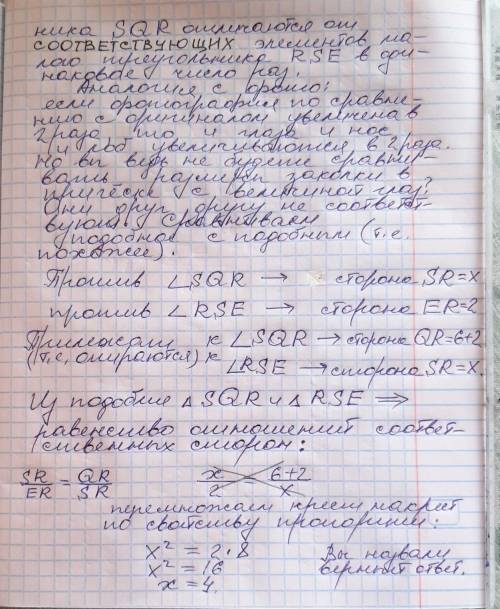 ника SQR отличаются от
СООТВЕТСТВУЮЩИХ элементов ма-
лого треугольника RSE в оди-
наковое число раз.
Аналогия с фото:
если фотография по сравне-
нию с оригиналом увеличена в
2 раза, то и глаза и нос
и лоб увеличиваются в 2 раза.
Но вы ведь не будете сравни-
вать размеры заколки в
причёске с величиной глаз?
Они друг другу не соответст-
вуют. Сравниваем
подобное с подобным (т.е.
похожее).
Против ∠SQR → сторона SR=x
против ∠RSE → сторона ER=2
Прилежат к ∠SQR → сторона QR=6+2
(т.е. опираются) к
∠RSE → сторона SR=x.
Из подобия △SQR и △RSE ⇒
равенство отношений соответ-
ственных сторон:
SR/ER = QR/SR x/2 = 6+2/x
перемножаем крест накрест
по свойству пропорции:
x² = 2·8 Вы назвали
x² = 16 верный ответ.
x = 4.